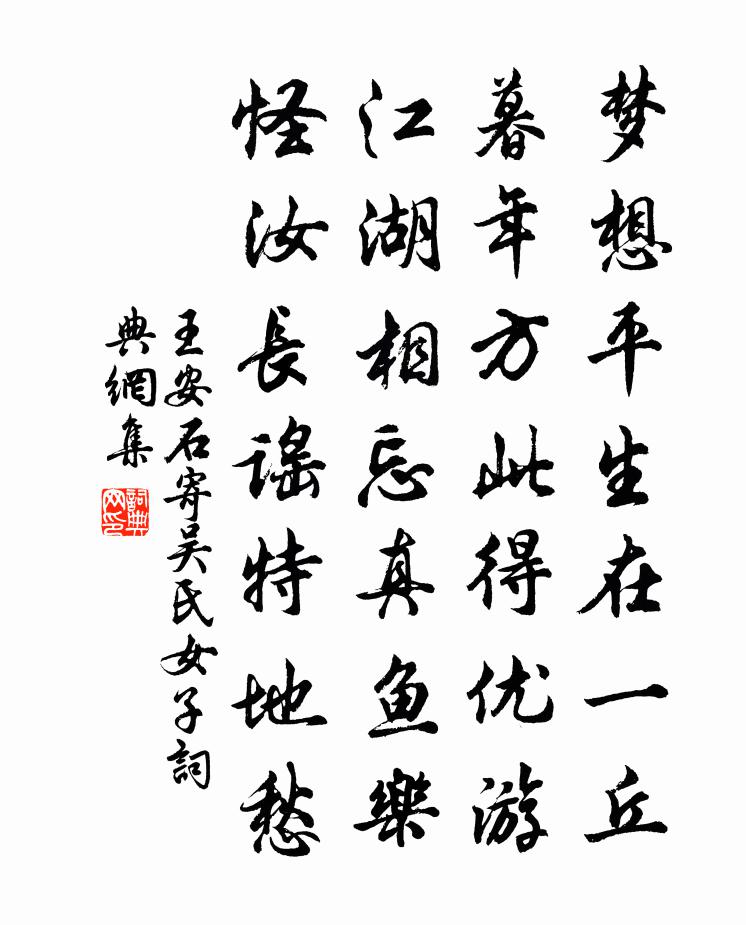 梦想平生在一丘
暮年方此得优游
江湖相忘真鱼樂
怪汝長谣特地愁
王安石寄吴氏女子詞
典網集
詞典網印